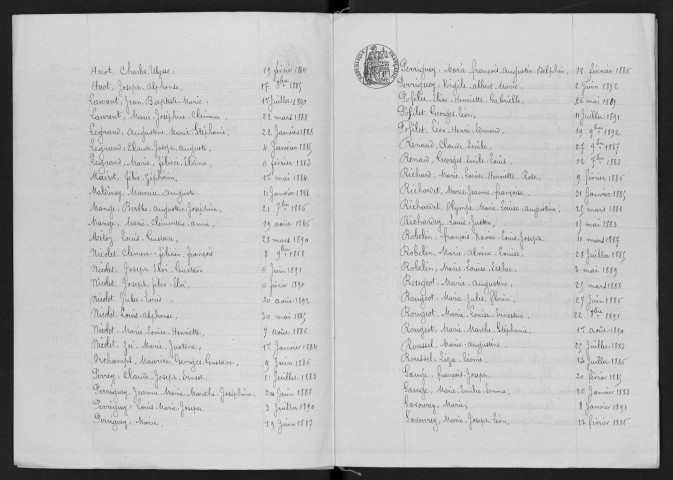 Huot, Charles Ulysse 19 février 1886
Huot, Joseph Alphonse 17 7bre 1885
Laurent, Jean Baptiste Marie 15 Juillet 1890
Laurent, Marie Joséphine Clémence 22 mars 1888
Legrand, Augustine Marie Stéphanie 22 Janvier 1886
Legrand, Claude Joseph Auguste 4 Janvier 1885
Legrand, Marie Félicie 6 février 1883
Mairot, Félix Zéphirin 1er mai 1884
Mathiney, Maurice Auguste 11 Janvier 1888
Mange, Berthe Augustine Joséphine 21 7bre 1886
Mange, Marie Clémentine Anna 19 août 1886
Louis Gustave 23 mars 1890
Nicolet, Clément Félicien François 8 9bre 1888
Nicolet, Joseph Eloi Gustave 6 Juin 1891
Nicolet, Joseph Félix Eloi 6 février 1890
Nicolet, Jules Louis 20 août 1892
Nicolet, Louis Alphonse 30 mai 1885
Nicolet, Marie Louise Henriette 7 août 1886
Nicolet, Zoé Marie Justine 1er Janvier 1884
Orchamps, Maurice Georges Gustave 9 Juin 1886
Perrey, Claude Joseph Ernest 21 Juillet 1883
Perriguey, Jeanne Marie Marthe Joséphine Juin 1888
Perriguey, Louis Marie Joseph 3 Juillet 1890
Perriguey, Marie 29 Juin 1887
Perriguey, Marie François Augustin Delphin 12 février 1886
Perriguey, Virgile Albert Marie 2 Juin 1892
Pofilet, Elise Henriette Gabrielle 26 mai 1889
Pofilet, Georges Léon 11 Juillet 1891
Pofilet, Léon Henri Edmond 19 9bre 1892
Renaud, Claude Emile 27 9bre 1887
Renaud, Georges Emile Louis 12 7bre 1883
Richard, Marie Louise Henriette Rose 9 février 1886
Richardet, Marie Jeanne Françoise 31 Janvier 1885
Richardet, Olympe Marie Louise Augustine 25 mars 1888
Richardey, Louis Justin 15 mai 1883
Robelin, François Xavier Louis Joseph 11 mars 1887
Robelin, Marie Louise 28 Juillet 1885
Robelin, Marie Louise Esther 2 mai 1889
Rougeot, Marie Augustine 25 mars 1888
Rougeot, Marie Jules 27 Juin 1886
Rougeot, Marie Louise Ernestine 22 1891
Rougeot, Marie Marthe Stéphanie 1er août 1890
Roussel, Marie Augustine 25 Juillet 1883
Roussel, Léonie 12 Juillet 1886
Sauge, François Joseph 20 février 1885
Sauge, Marie Emilie Emma 20 Janvier 1883
Savourey, Marie 8 Janvier 1891
Savourey, Marie Joseph Léon 22 février 1886